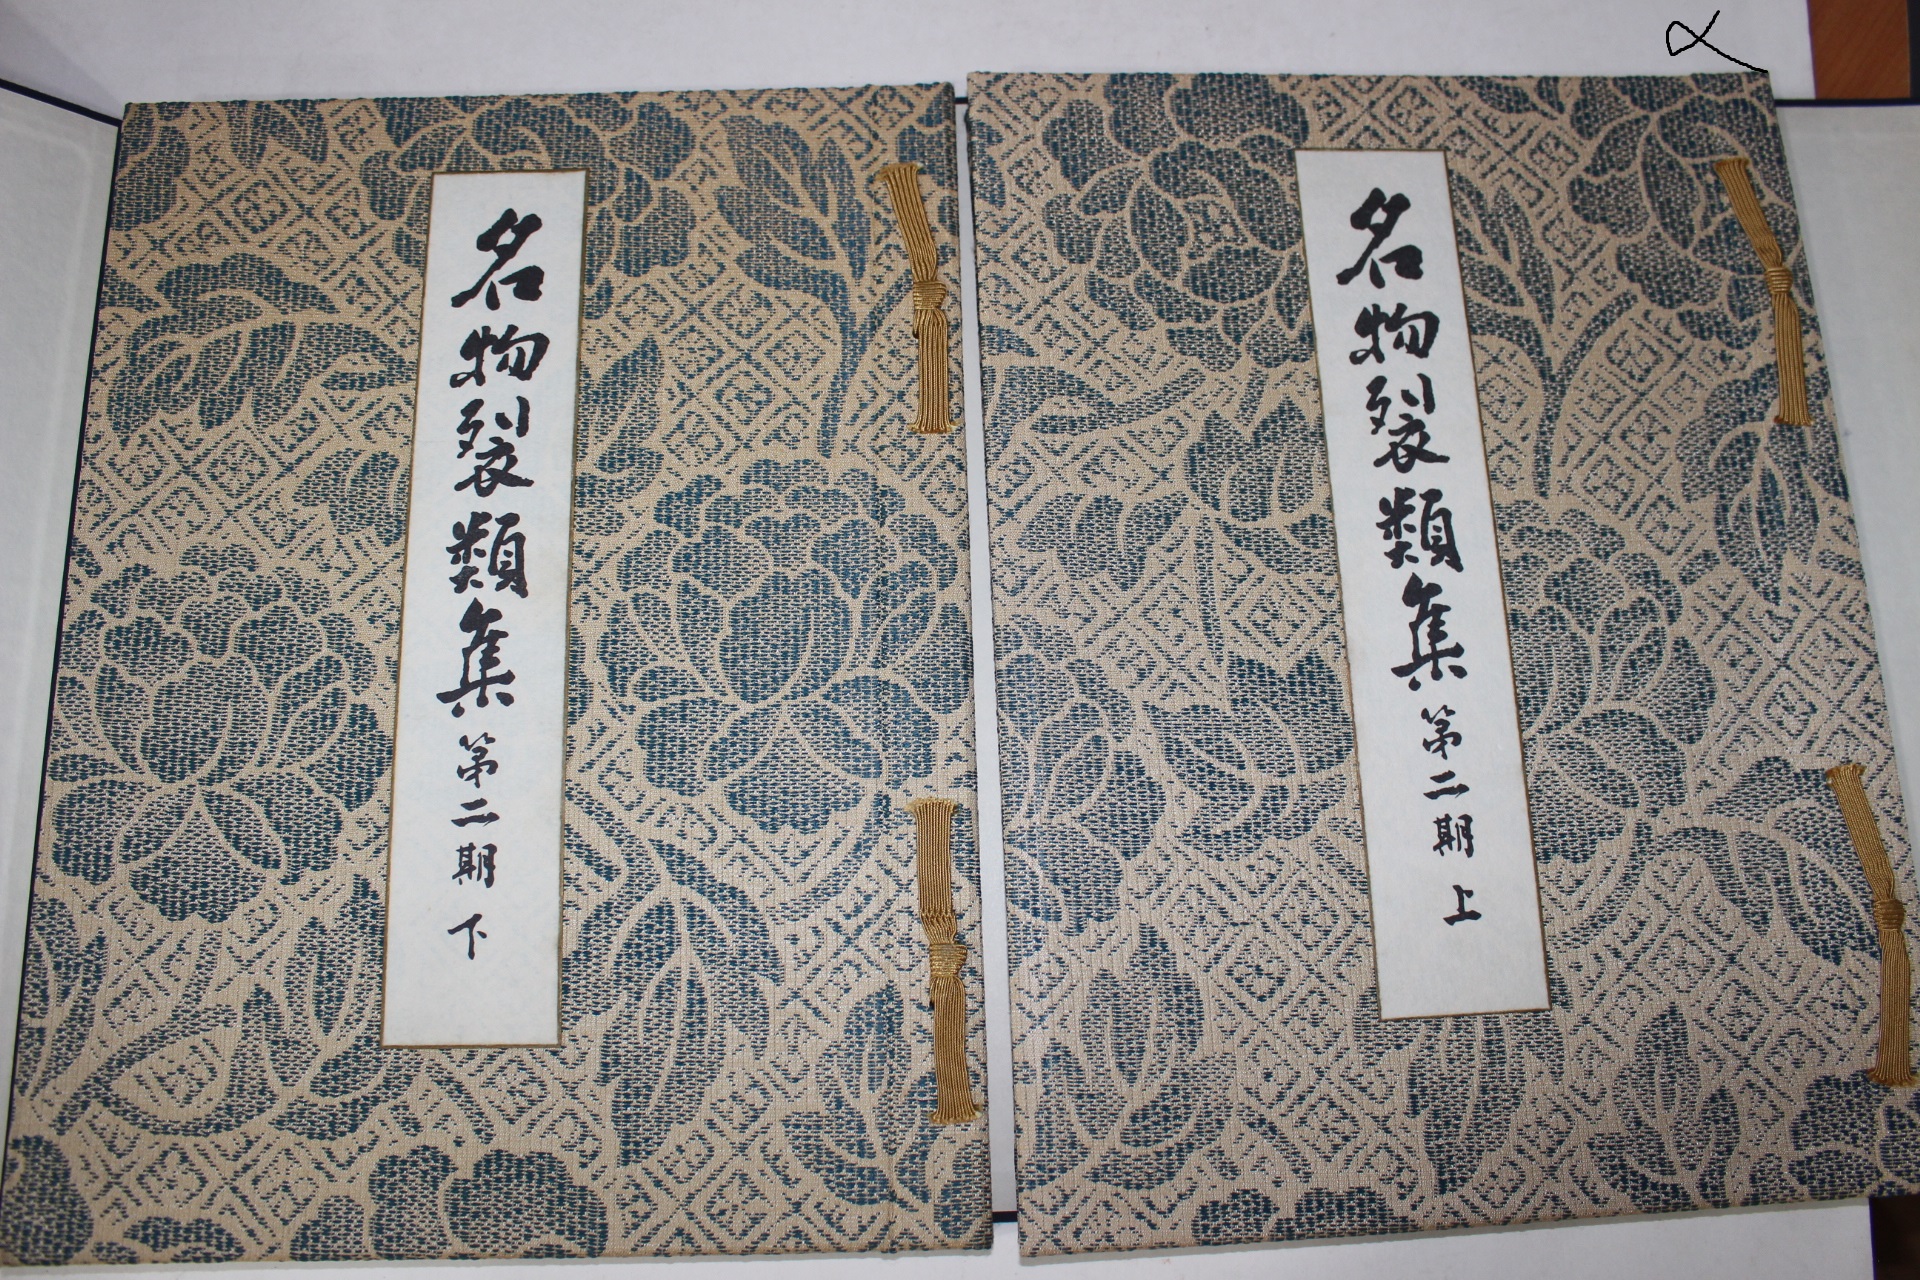 名物裂類集 第二期 上
名物裂類集 第二期 下